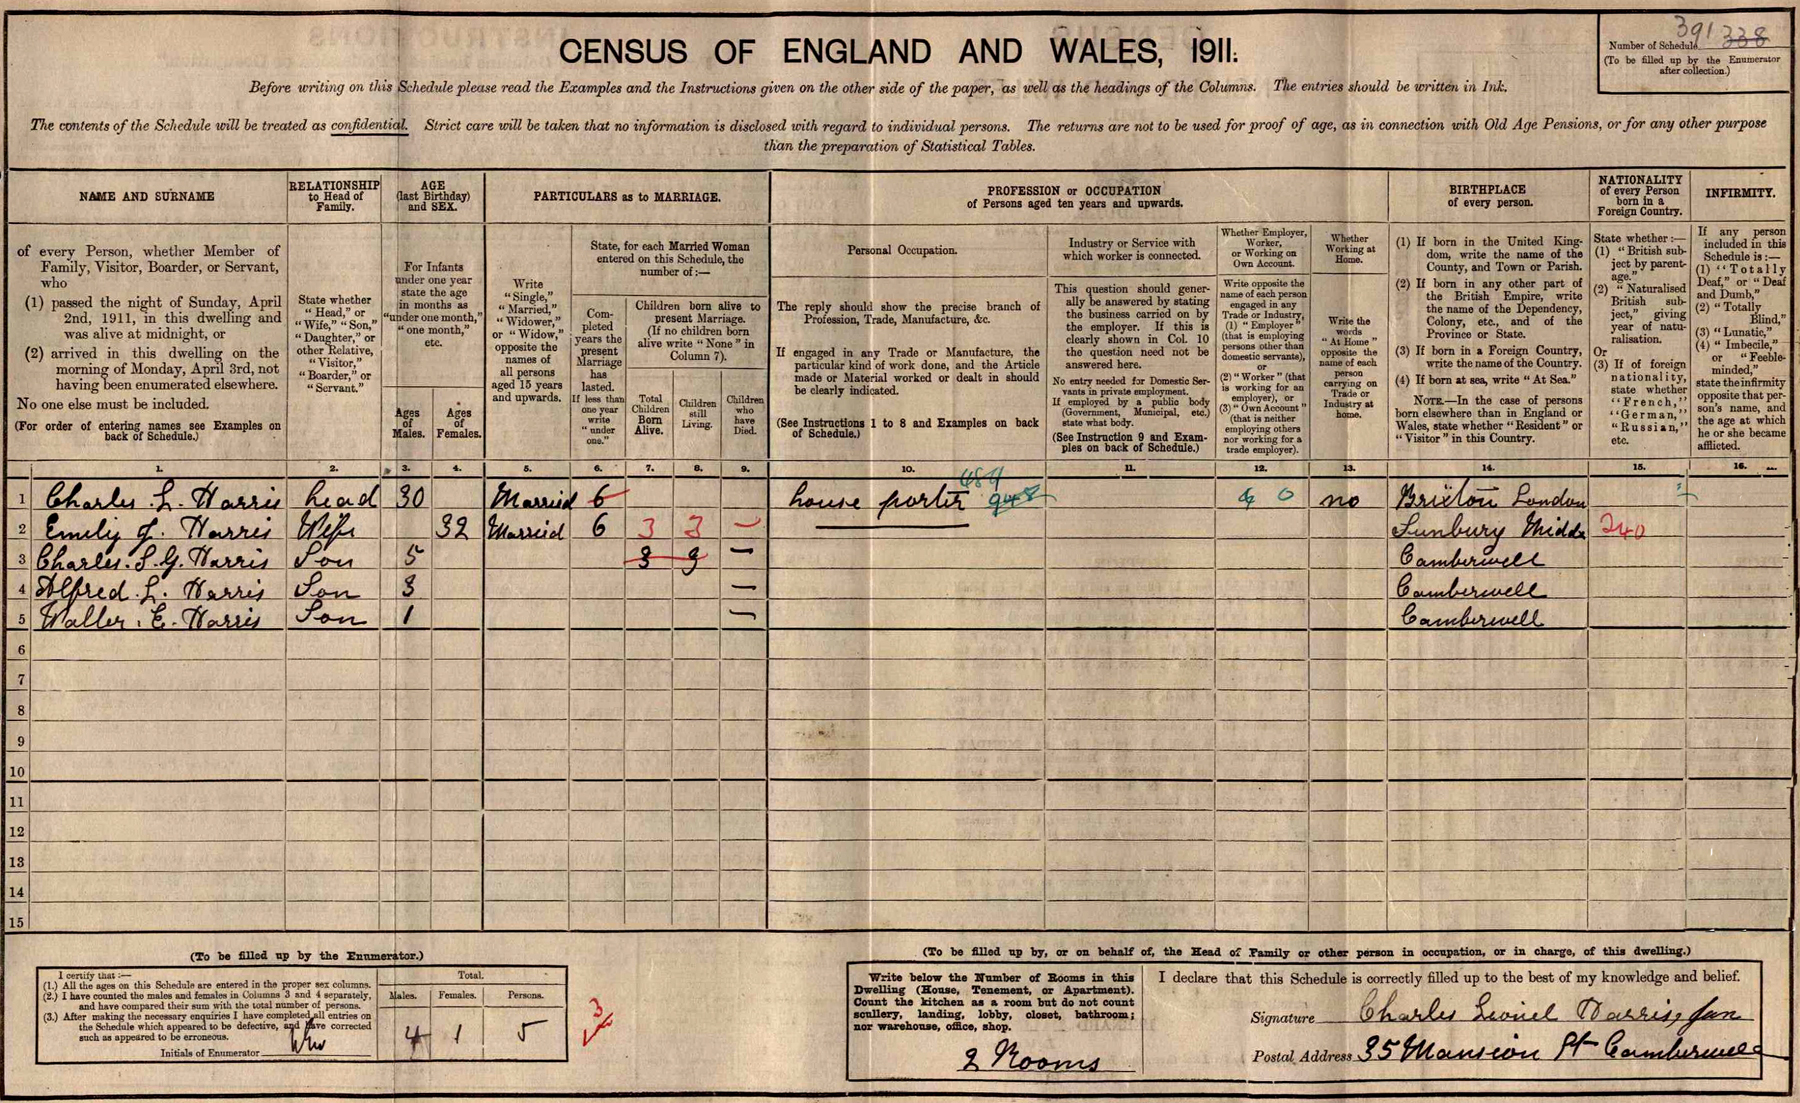 CENSUS OF ENGLAND AND WALES, 1911.
391 338
Number of Schedule
(To be filled up by the Enumerator
after collection.)
Before writing on this Schedule please read the Examples and the Instructions given on the other side of the paper, as well as the headings of the Columns. The entries should be written in Ink.
The contents of the Schedule will be treated as confidential. Strict care will be taken that no information is disclosed with regard to individual persons. The returns are not to be used for proof of age, as in connection with Old Age Pensions, or for any other purpose
than the preparation of Statistical Tables.
NAME AND SURNAME
of every Person, whether Member of
Family, Visitor, Boarder, or Servant,
who
(1) passed the night of Sunday, April
2nd, 1911, in this dwelling and
was alive at midnight, or
(2) arrived in this dwelling on the
morning of Monday, April 3rd, not
having been enumerated elsewhere.
No one else must be included.
(For order of entering names see Examples on
back of Schedule.)
RELATIONSHIP
to Head of
Family.
State whether
"Head," or
"Wife," "Son,"
"Daughter," or
other Relative,
"Visitor,"
"Boarder," or
"Servant."
AGE
(last Birthday)
and SEX.
For Infants
under one year
state the age
in months as
"under one month,"
"one month,"
etc.
Ages
of
Males.
Ages
of
Females.
PARTICULARS as to MARRIAGE.
Write
"Single,"
"Married,"
"Widower,"
or "Widow,"
opposite the
names of
all persons
aged 15 years
and upwards.
State, for each Married Woman
entered on this Schedule, the
number of:—
Com-
pleted
years the
present
Marriage
has
lasted.
If less than
one year
write
"under
one."
Children born alive to
present Marriage.
(If no children born
alive write "None" in
Column 7).
Total
Children
Born
Alive.
Children
still
Living.
Children
who
have
Died.
PROFESSION or OCCUPATION
of Persons aged ten years and upwards.
Personal Occupation.
The reply should show the precise branch of
Profession, Trade, Manufacture, &c.
If engaged in any Trade or Manufacture, the
particular kind of work done, and the Article
made or Material worked or dealt in should
be clearly indicated.
(See Instructions 1 to 8 and Examples on back
of Schedule.)
Industry or Service with
which worker is connected.
This question should gener-
ally be answered by stating
the business carried on by
the employer. If this is
clearly shown in Col. 10
the question need not be
answered here.
No entry needed for Domestic Ser-
vants in private employment.
If employed by a public body
(Government, Municipal, etc.)
state what body.
(See Instruction 9 and Exam-
ples on back of Schedule.)
Whether Employer,
Worker,
or Working on
Own Account.
Write opposite the
name of each person
engaged in any
Trade or Industry,
(1) "Employer"
(that is employing
persons other than
domestic servants),
or
(2) "Worker" (that
is working for an
employer), or
(3) "Own Account"
(that is neither
employing others
nor working for a
trade employer).
Whether
Working at
Home.
Write the
words
"At Home"
opposite the
name of each
person
carrying on
Trade or
Industry at
home.
BIRTHPLACE
of every person.
(1) If born in the United King-
dom, write the name of the
County, and Town or Parish.
(2) If born in any other part of
the British Empire, write
the name of the Dependency,
Colony, etc., and of the
Province or State.
(3) If born in a Foreign Country,
write the name of the Country.
(4) If born at sea, write "At Sea."
NOTE.—In the case of persons
born elsewhere than in England or
Wales, state whether "Resident" or
"Visitor" in this Country.
NATIONALITY
of every Person
born in a
Foreign Country.
State whether:—
(1) "British sub-
ject by parent-
age."
(2) "Naturalised
British sub-
ject," giving
year of natu-
ralisation.
Or
(3) If of foreign
nationality,
state whether
"French,"
"German,"
"Russian,"
etc.
INFIRMITY.
If any person
included in this
Schedule is:—
(1) "Totally
Deaf," or "Deaf
and Dumb,"
(2) "Totally
Blind,"
(3) "Lunatic,"
(4) "Imbecile,"
or "Feeble-
minded,"
state the infirmity
opposite that per-
son's name, and
the age at which
he or she became
afflicted.
1. 2. 3. 4. 5. 6. 7. 8. 9. 10. 11. 12. 13. 14. 15. 16.
1 Charles. L. Harris head 30 Married 6 house porter no Brixton London
2 Emily J. Harris Wife 32 Married 6 3 3 — Sunbury Middx 240
3 Charles. L. G. Harris Son 5 3 3 — Camberwell
4 Alfred. L. Harris Son 3 — Camberwell
5 Walter. E. Harris Son 1 — Camberwell
6
7
8
9
10
11
12
13
14
15
(To be filled up by the Enumerator.)
I certify that:—
(1.) All the ages on this Schedule are entered in the proper sex columns.
(2.) I have counted the males and females in Columns 3 and 4 separately,
and have compared their sum with the total number of persons.
(3.) After making the necessary enquiries I have completed all entries on
the Schedule which appeared to be defective, and have corrected
such as appeared to be erroneous.
Initials of Enumerator
Total.
Males. Females. Persons.
4 1 5
3
(To be filled up by, or on behalf of, the Head of Family or other person in occupation, or in charge, of this dwelling.)
Write below the Number of Rooms in this
Dwelling (House, Tenement, or Apartment).
Count the kitchen as a room but do not count
scullery, landing, lobby, closet, bathroom;
nor warehouse, office, shop.
2 Rooms
I declare that this Schedule is correctly filled up to the best of my knowledge and belief.
Signature Charles Lionel Harris, Jun
Postal Address 35 Mansion St Camberwell